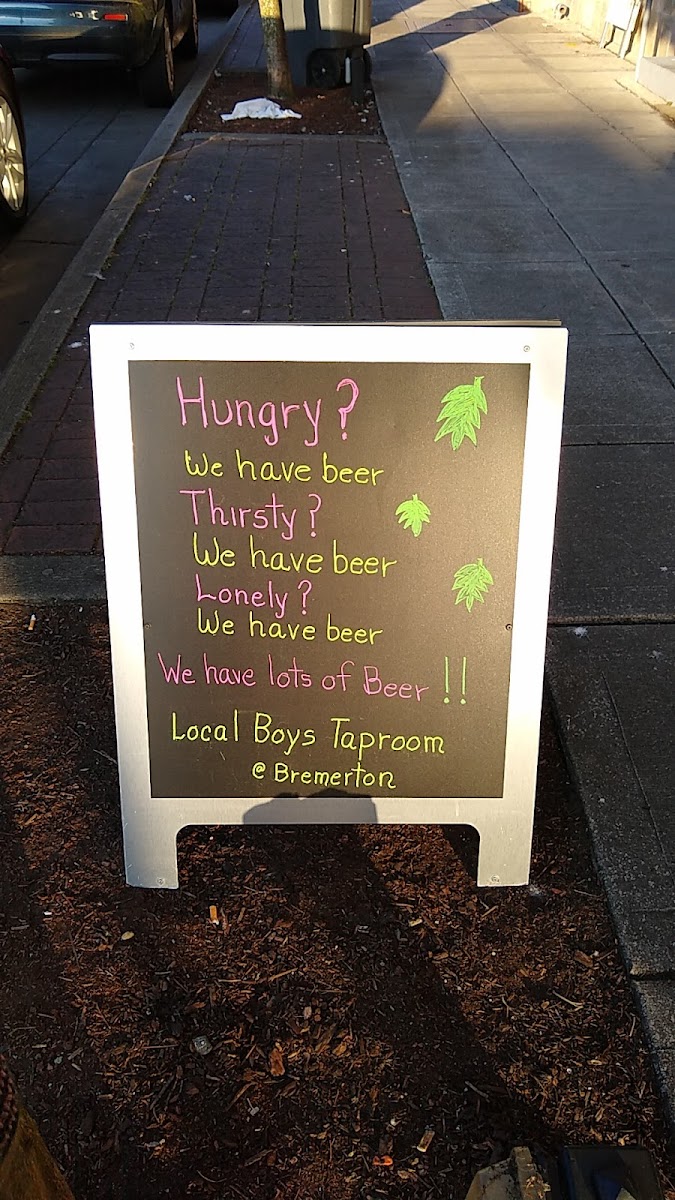 Hungry?
We have beer
Thirsty?
We have beer
Lonely?
We have beer
We have lots of Beer !!
Local Boys Taproom
@ Bremerton